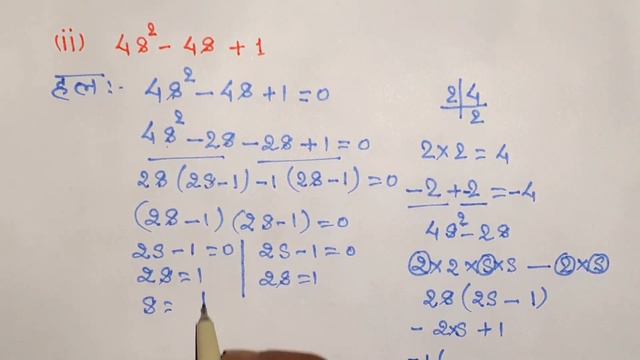 (ii) 4s² - 4s + 1
हल :- 4s² - 4s + 1 = 0
4s² - 2s - 2s + 1 = 0
2s (2s - 1) - 1 (2s - 1) = 0
(2s - 1) (2s - 1) = 0
2s - 1 = 0 | 2s - 1 = 0
2s = 1 | 2s = 1
s = 1
2 | 4
2
2 × 2 = 4
-2 + -2 = -4
4s² - 2s
2 × 2 × s × s — 2 × s
2s (2s - 1)
- 2×s + 1
-1 (